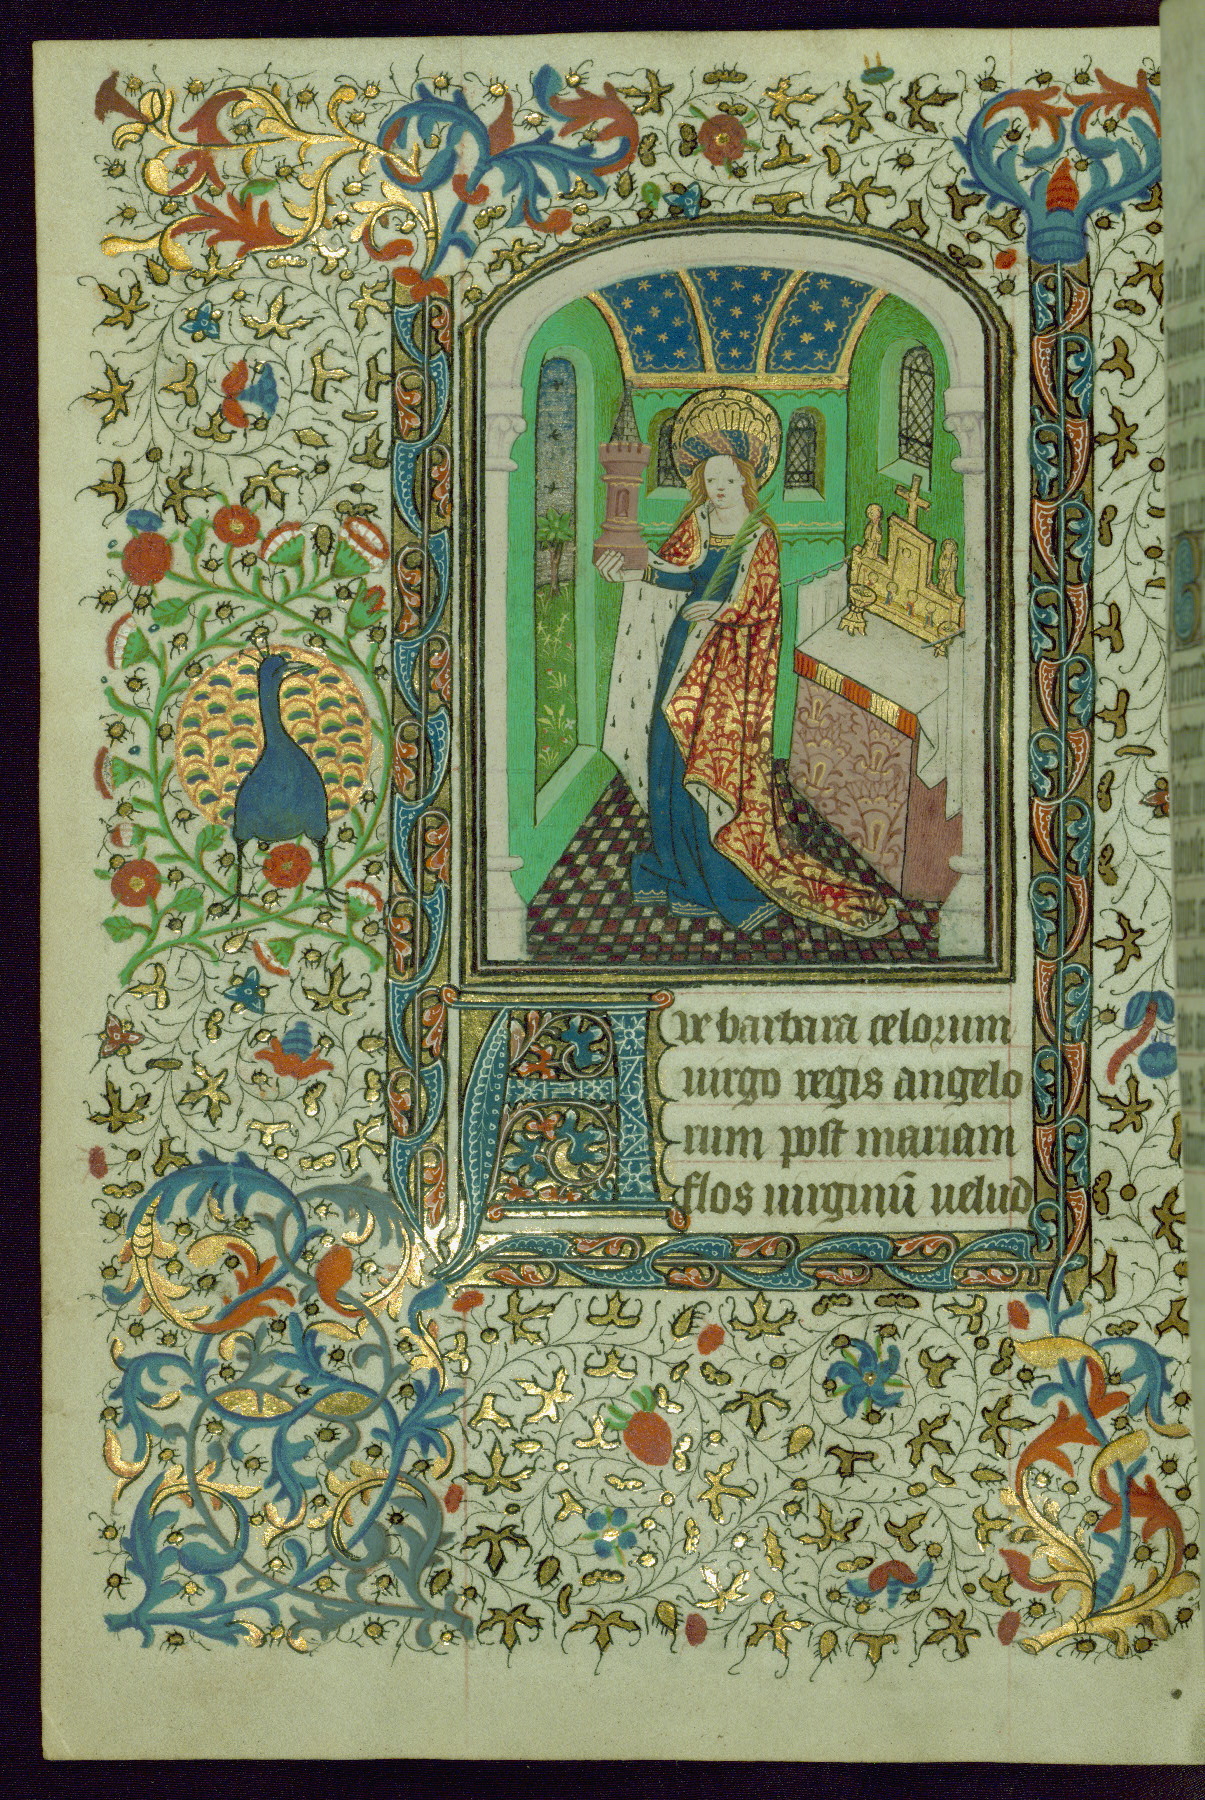 Aue barbara celorum
uirgo regis angelo
rum post mariam
flos uirginū uelud